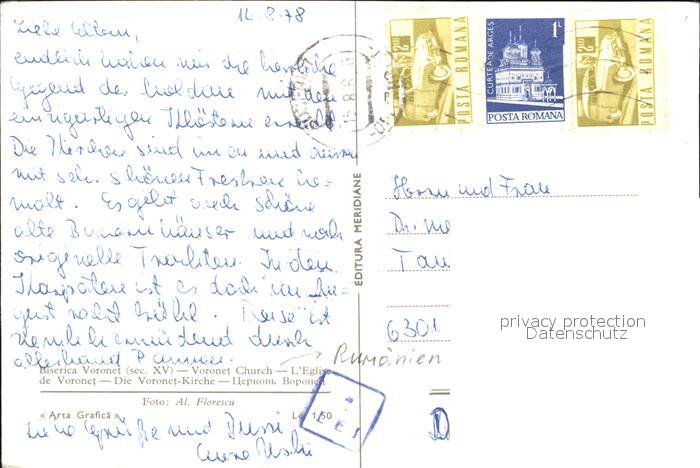 14-8-78
Liebe Eltern,
endlich haben wir die herrliche
Gegend der Moldau mit den
einzigartigen Klöstern erreicht
Die Kirchen sind innen und aussen
mit sehr schönen Fresken be-
malt. Es gibt auch schöne
alte Bauernhäuser und noch
originelle Trachten. In den
Karpaten ist es doch im Au-
gust recht kühl. Reise ist
ziemlich ermüdend durch
allerhand Pannen.
Biserica Voroneț (sec. XV) — Voroneț Church — L'Eglise
de Voroneț — Die Voroneț-Kirche — Церковь Воронец
Foto: Al. Florescu
« Arta Grafică » Lei 1/50
Liebe Grüße und Bussi
Eure Uschi
EDITURA MERIDIANE
Rumänien
LEI
2L POSTA ROMANA
CURTEA DE ARGEȘ 1L
POSTA ROMANA
2L POSTA ROMANA
Herrn und Frau
Dr. Me
Tau
6301
privacy protection
Datenschutz
D